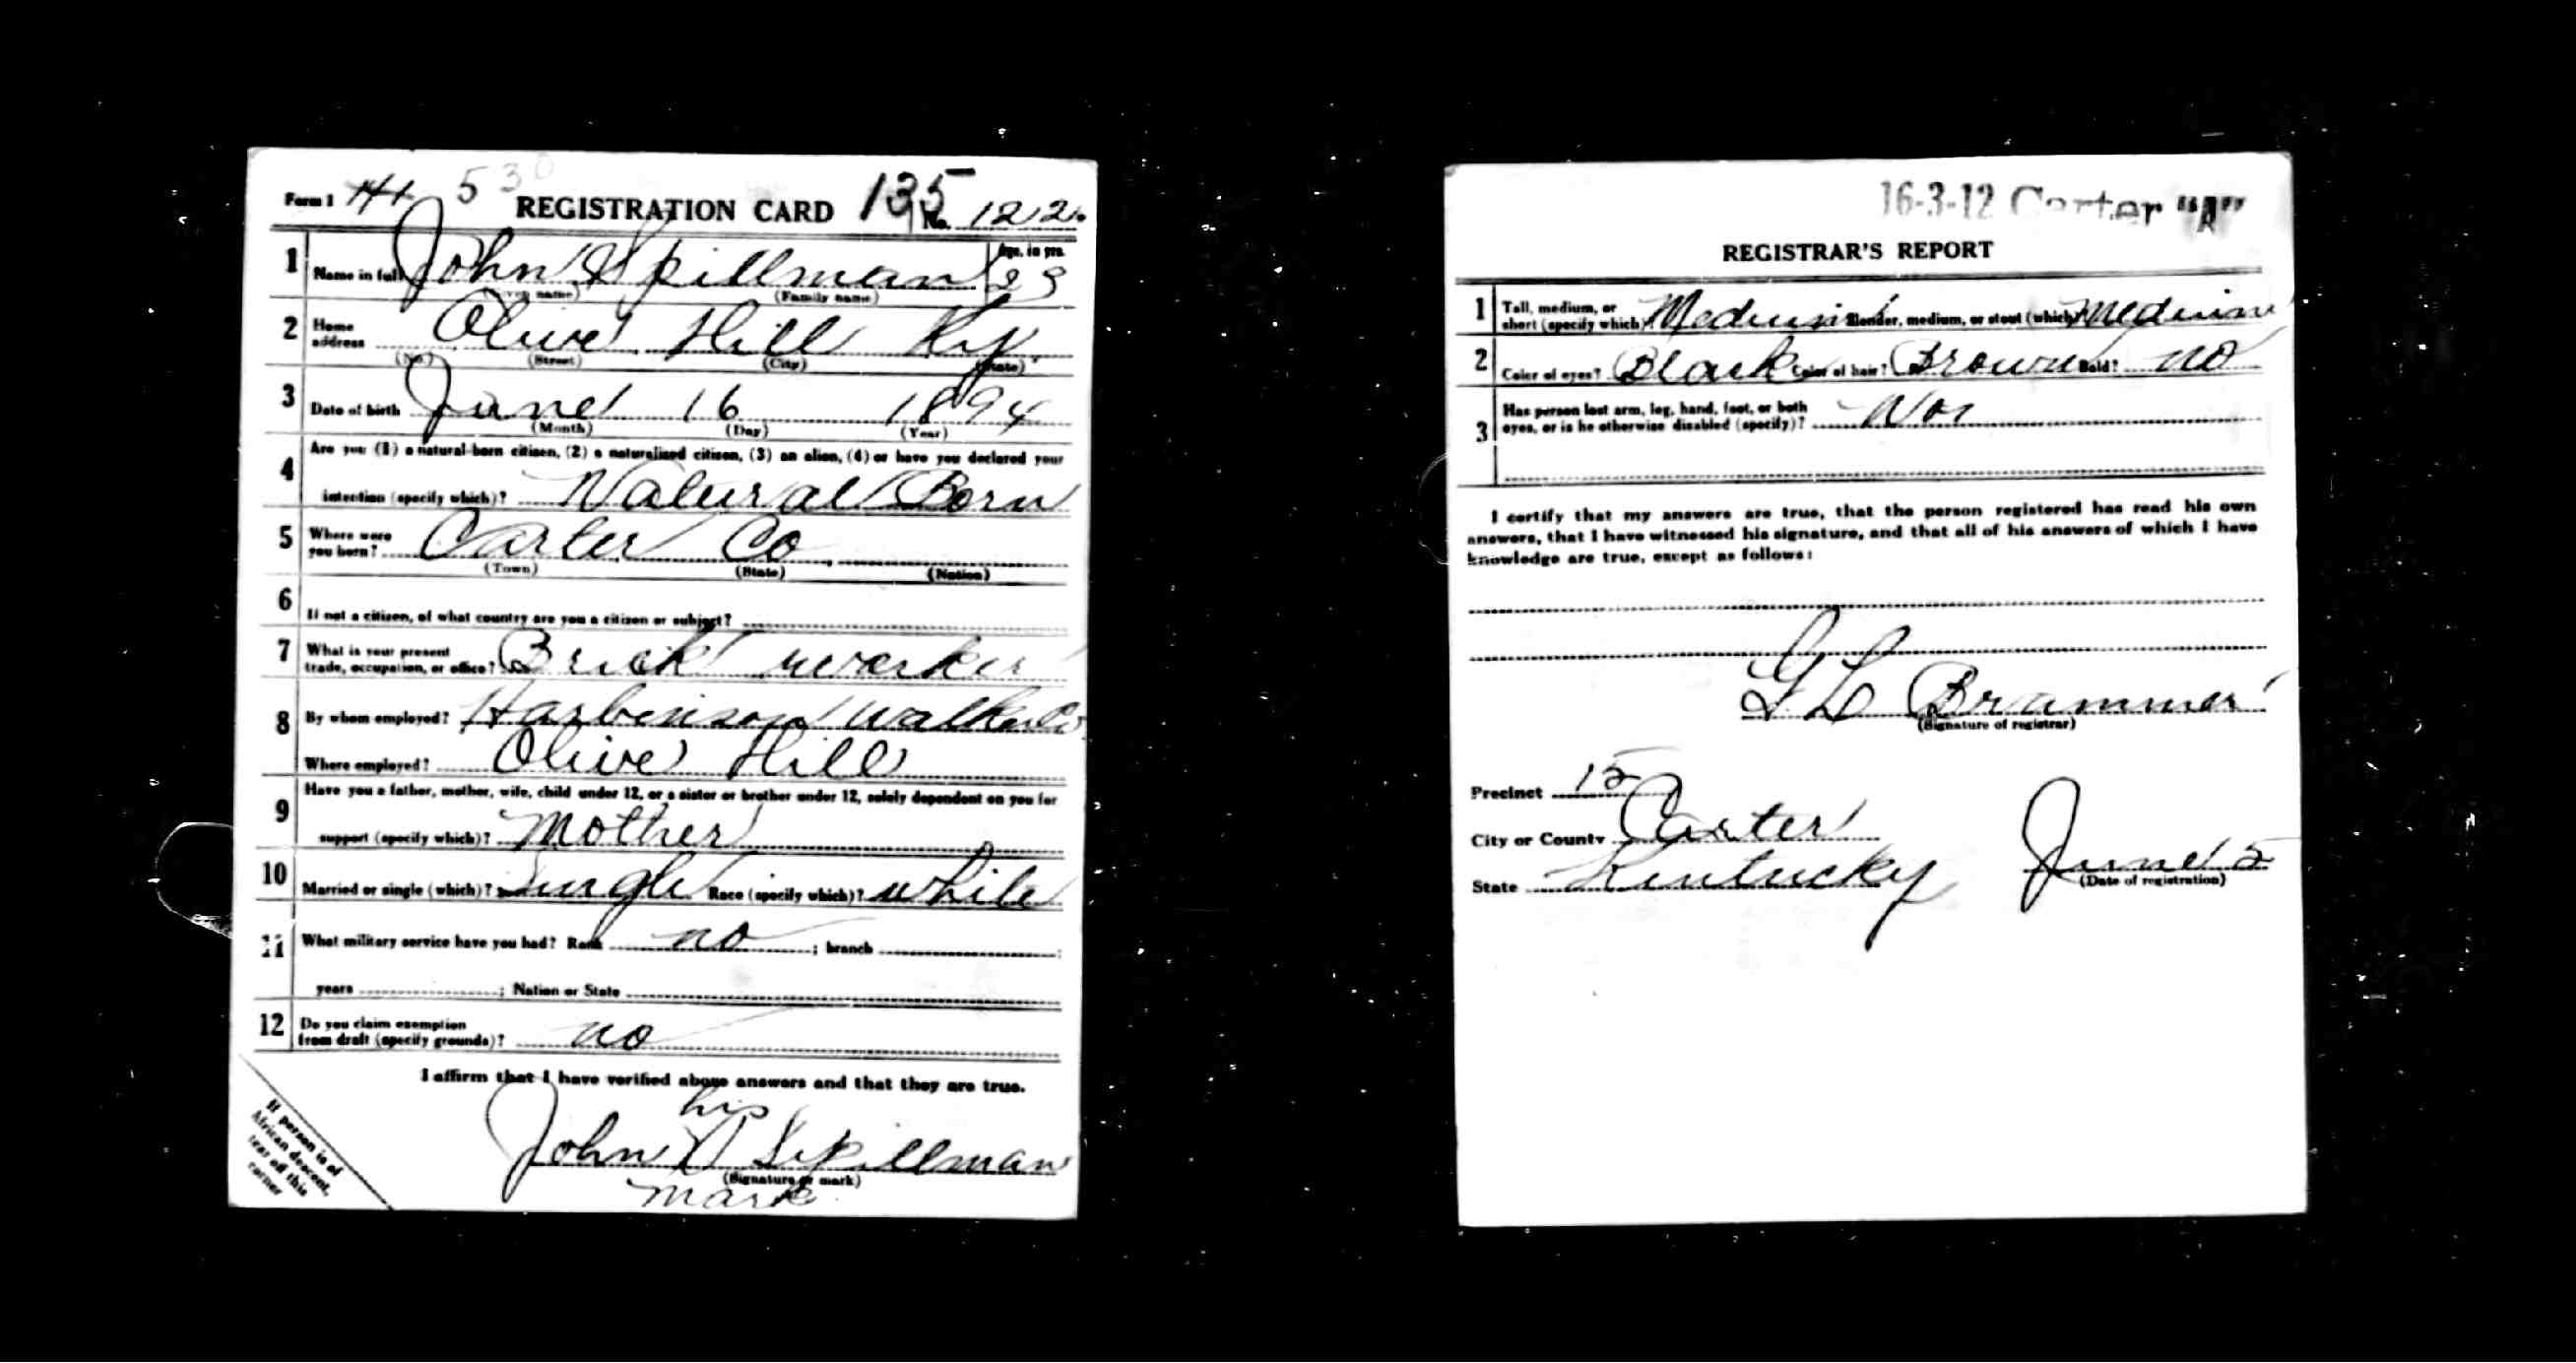 Form 1 530 REGISTRATION CARD 135 No. 122
1 Name in full John Spillman Age, in yrs. 23
(Given name) (Family name)
2 Home address Olive Hill Ky.
(No.) (Street) (City) (State)
3 Date of birth June 16 1894
(Month) (Day) (Year)
4 Are you (1) a natural-born citizen, (2) a naturalized citizen, (3) an alien, (4) or have you declared your
intention (specify which)? Natural Born
5 Where were you born? Carter Co
(Town) (State) (Nation)
6 If not a citizen, of what country are you a citizen or subject?
7 What is your present
trade, occupation, or office? Brick worker
8 By whom employed? Harbinson Walker Co
Where employed? Olive Hill
9 Have you a father, mother, wife, child under 12, or a sister or brother under 12, solely dependent on you for
support (specify which)? Mother
10 Married or single (which)? Single Race (specify which)? white
11 What military service have you had? Rank no ; branch ;
years ; Nation or State
12 Do you claim exemption
from draft (specify grounds)? no
I affirm that I have verified above answers and that they are true.
his
John X Spillman
(Signature or mark)
mark
If person is of
African descent,
tear off this
corner
16-3-12 Carter "A"
REGISTRAR'S REPORT
1 Tall, medium, or
short (specify which)? Medium Slender, medium, or stout (which)? Medium
2 Color of eyes? Black Color of hair? Brown Bald? no
3 Has person lost arm, leg, hand, foot, or both
eyes, or is he otherwise disabled (specify)? No
I certify that my answers are true, that the person registered has read his own
answers, that I have witnessed his signature, and that all of his answers of which I have
knowledge are true, except as follows:
G L Brammer
(Signature of registrar)
Precinct 15
City or County Carter
State Kentucky June 5
(Date of registration)